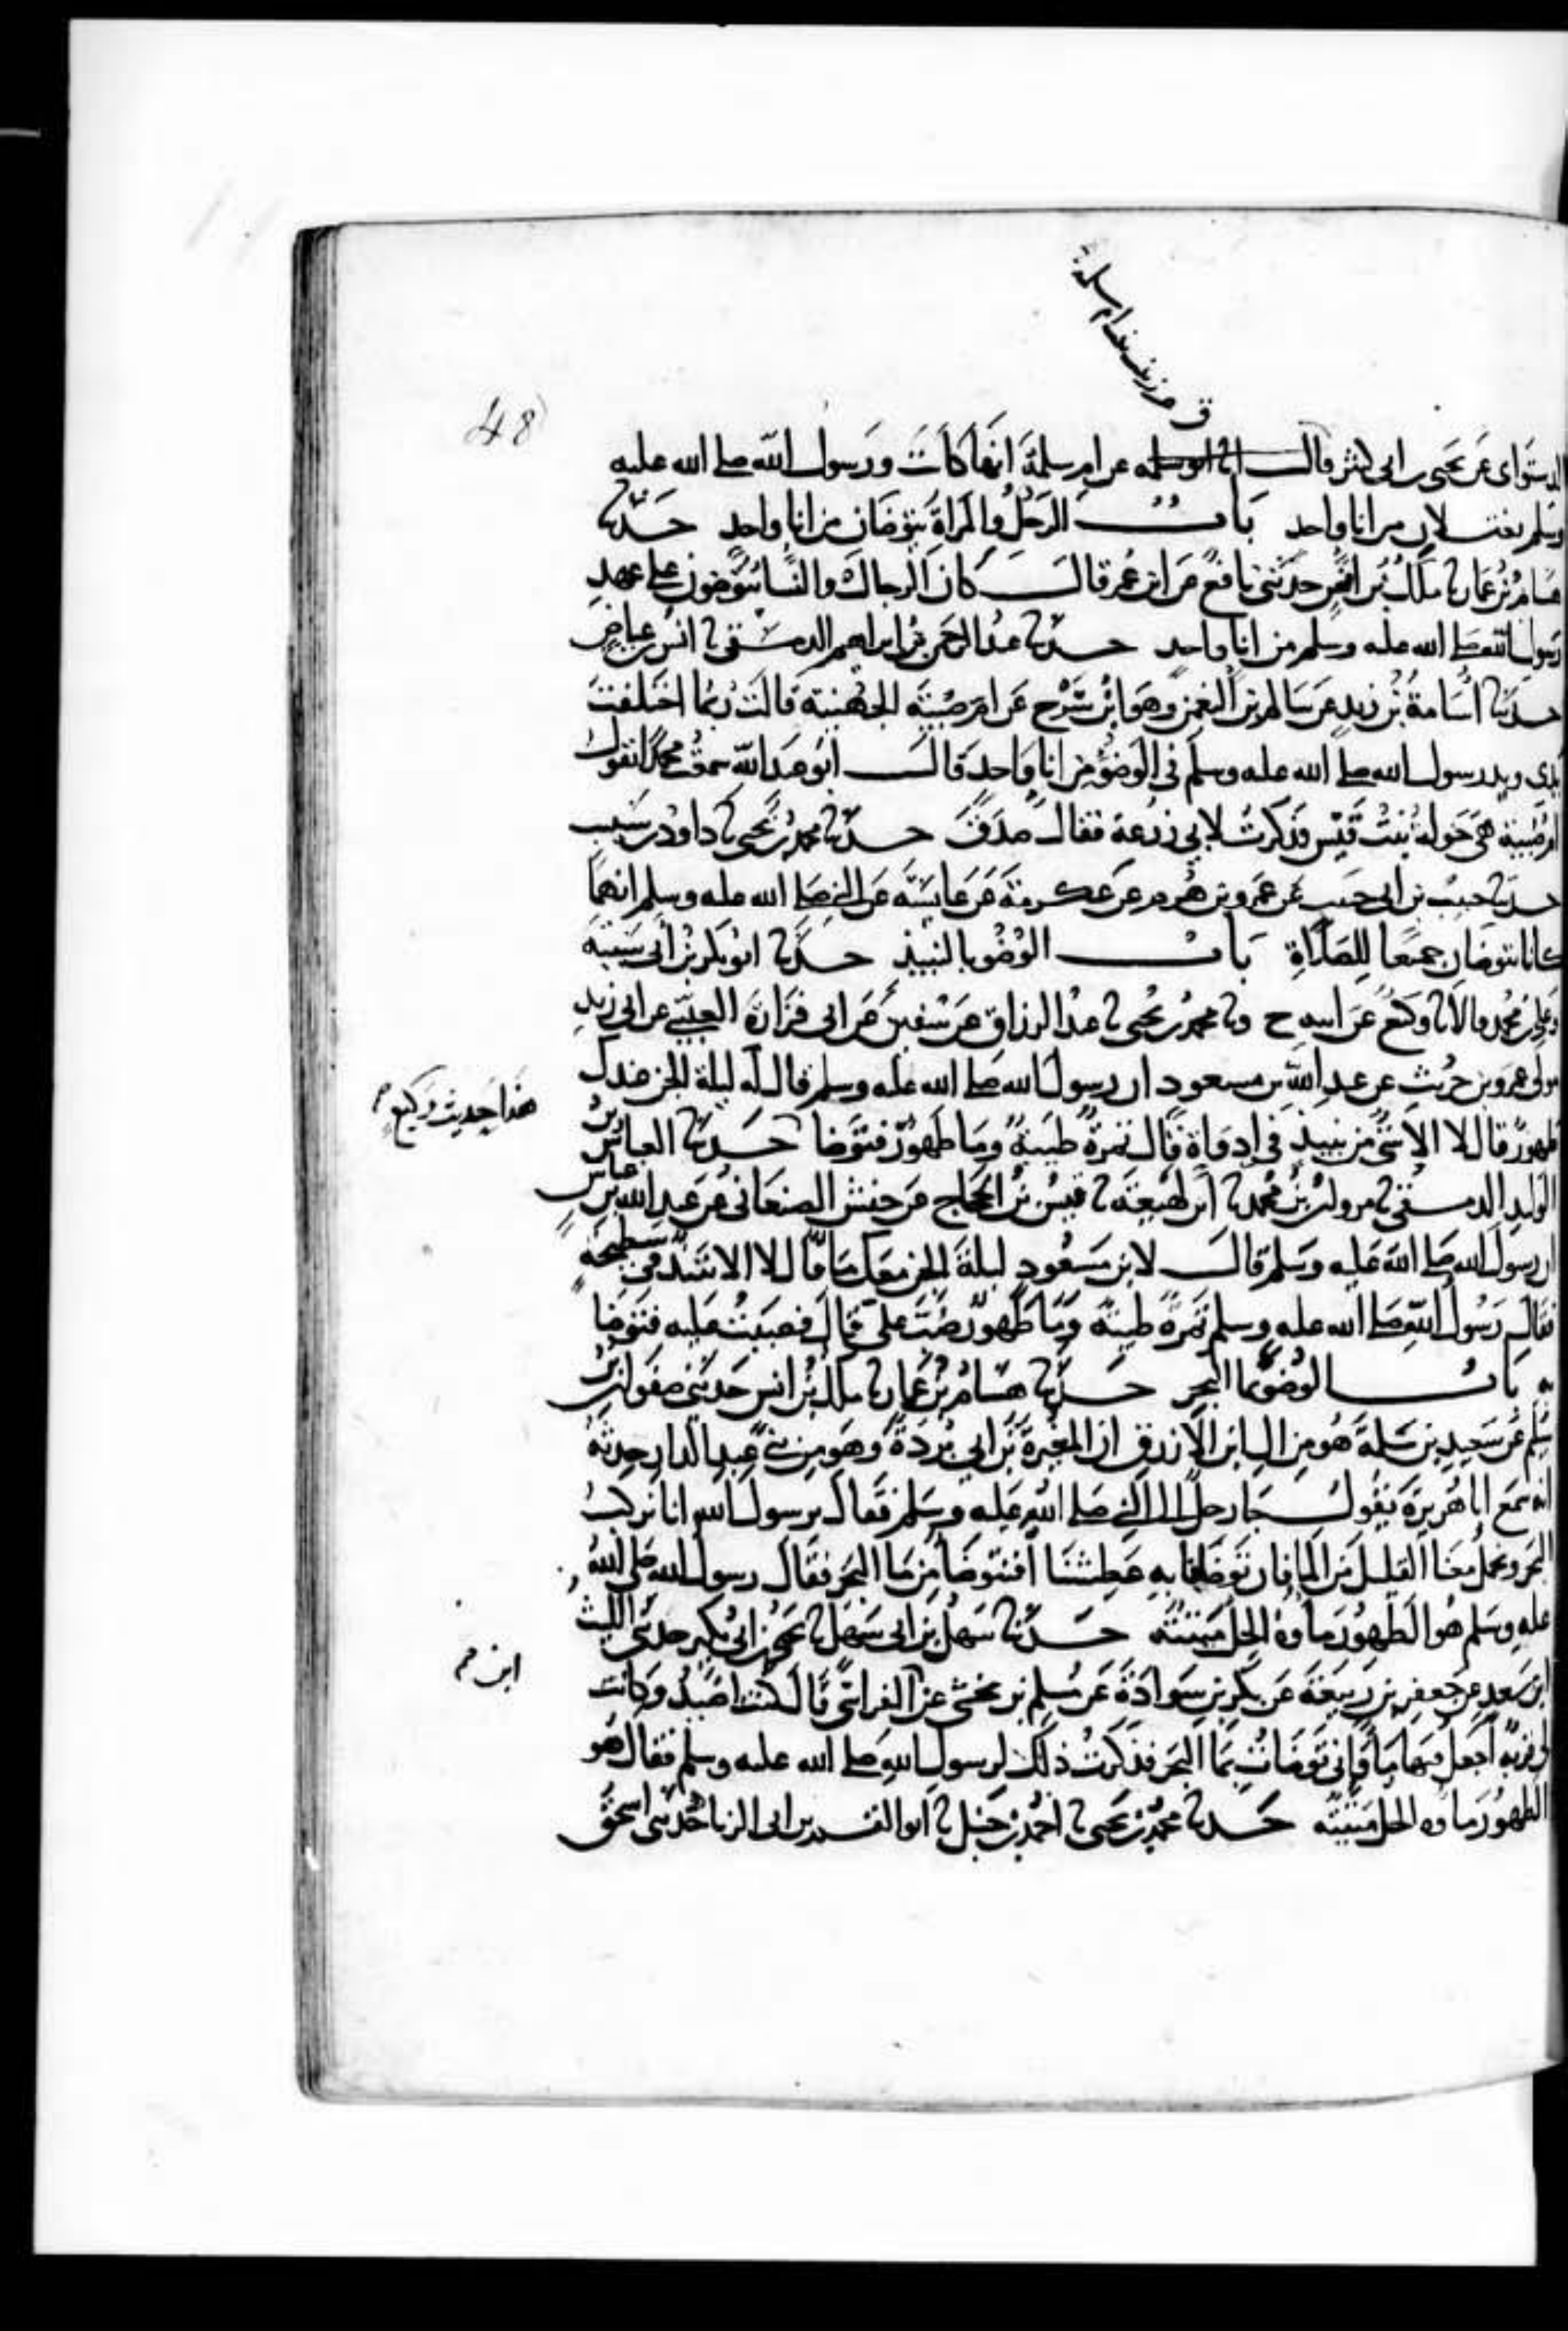 48
الدستوای عن يحيى بن ابی كثير قالـــ انا ابو سلمه عن ام سلمة انها كانت ورسول الله صلى الله عليه
وسلم يغتسلان من انا واحد باب الرجل والمراة يتوضان من انا واحد حدثنا
هشام بن عمار نا ملك بن انس حدثنى نافع عن ابن عمر قالـــ كان الرجال والنسا يتوضون على عهد
رسول الله صلى الله عليه وسلم من انا واحد حدثنا عبد الرحمن بن ابراهيم الدمشقى نا انس بن عياض
حدثنا اسامة بن زيد عن سالم بن النعمن وهو ابن سرج عن ام صبية الجهنية قالت ربما اختلفت
يدى ويد رسول الله صلى الله عليه وسلم فى الوضو من انا واحد قالـــ ابو عبد الله سمعت محمدا يقول
ام صبية هى خولة بنت قيس فذكرت لابى زرعة فقال صدق حدثنا محمد بن يحيى نا داود بن شبيب
حدثنا حبيب بن ابى حبيب عن عمرو بن هرم عن عكرمة عن عايشة عن النبى صلى الله عليه وسلم انهما
كانا يتوضان جميعا للصلاة باب الوضو بالنبيذ حدثنا ابو بكر بن ابى شيبة
وعلى بن محمد قالا نا وكيع عن ابيه ح ونا محمد بن يحيى نا عبد الرزاق عن سفين عن ابى فزارة العبسى عن ابى زيد
مولى عمرو بن حريث عن عبد الله بن مسعود ان رسول الله صلى الله عليه وسلم قال له ليلة الجن عندك
طهور قال لا الا شى من نبيذ فى اداوة قال تمرة طيبة وما طهور فتوضا حدثنا العباس بن
هذا حديث وكيع
الوليد الدمشقى نا مروان بن محمد نا ابن لهيعة نا قيس بن الحجاج عن حنش الصنعانى عن عبد الله بن عباس
ان رسول الله صلى الله عليه وسلم قالـــ لابن مسعود ليلة الجن معك ما قال لا الا نبيذ فى سطيحة
فقال رسول الله صلى الله عليه وسلم تمرة طيبة وما طهور صب على قال فصببت عليه فتوضا
به باب الوضو بما البحر حدثنا هشام بن عمار نا ملك بن انس حدثنى صفوان بن
سليم عن سعيد بن سلمة هو من ال ابن الازرق ان المغيرة بن ابى بردة وهو من بنى عبد الدار حدثه
انه سمع ابا هريرة يقول جا رجل الى النبى صلى الله عليه وسلم فقال يرسول الله انا نركب
البحر ونحمل معنا القليل من الما فان توضانا به عطشنا افنتوضا من ما البحر فقال رسول الله صلى الله
عليه وسلم هو الطهور ماوه الحل ميتته حدثنا سهل بن ابى سهل نا يحيى بن ابى بكير حدثنى الليث
ابن
ابن سعد عن جعفر بن ربيعة عن بكر بن سوادة عن مسلم بن مخشى عن الفراسى قال كنت اصيد وكانت
لى قربة اجعل فيها ما وانى توضات بما البحر فذكرت ذلك لرسول الله صلى الله عليه وسلم فقال هو
الطهور ماوه الحل ميتته حدثنا محمد بن يحيى نا احمد بن حنبل نا ابو القسم بن ابى الزناد حدثنى اسحق